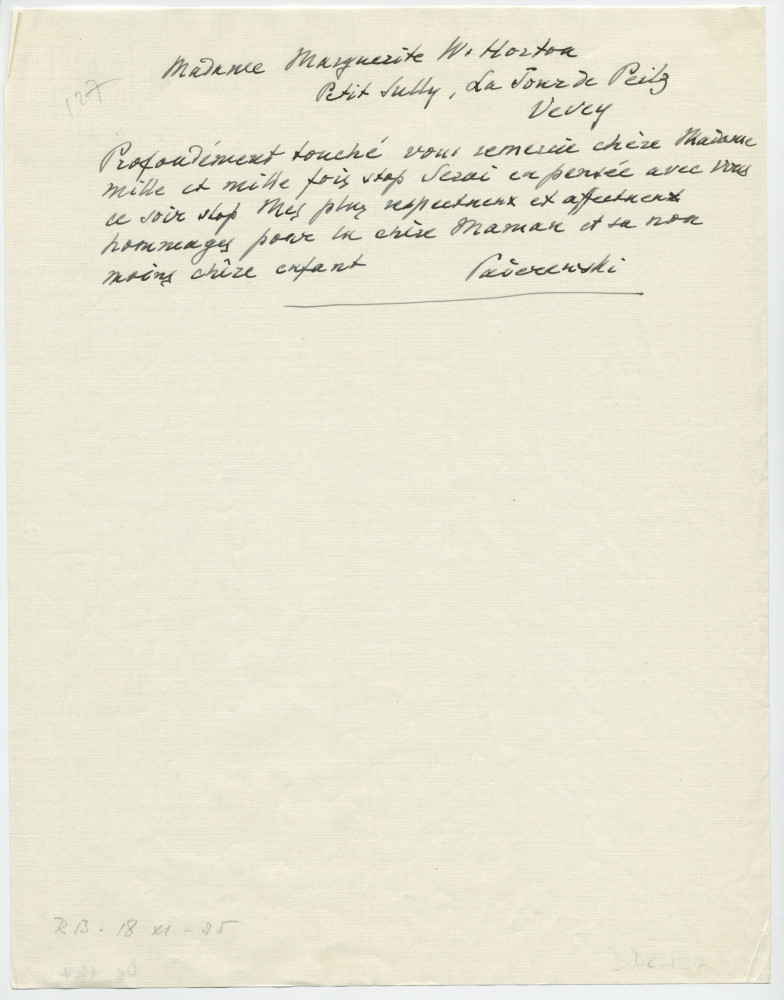 127
Madame Marguerite W. Horton
Petit Sully, La Tour de Peilz
Vevey
Profondément touché vous remercie chère Madame
mille et mille fois stop Serai en pensée avec vous
ce soir stop Mes plus respectueux et affectueux
hommages pour la chère Maman et sa non
moins chère enfant Paderewski
RB - 18 XI - 25